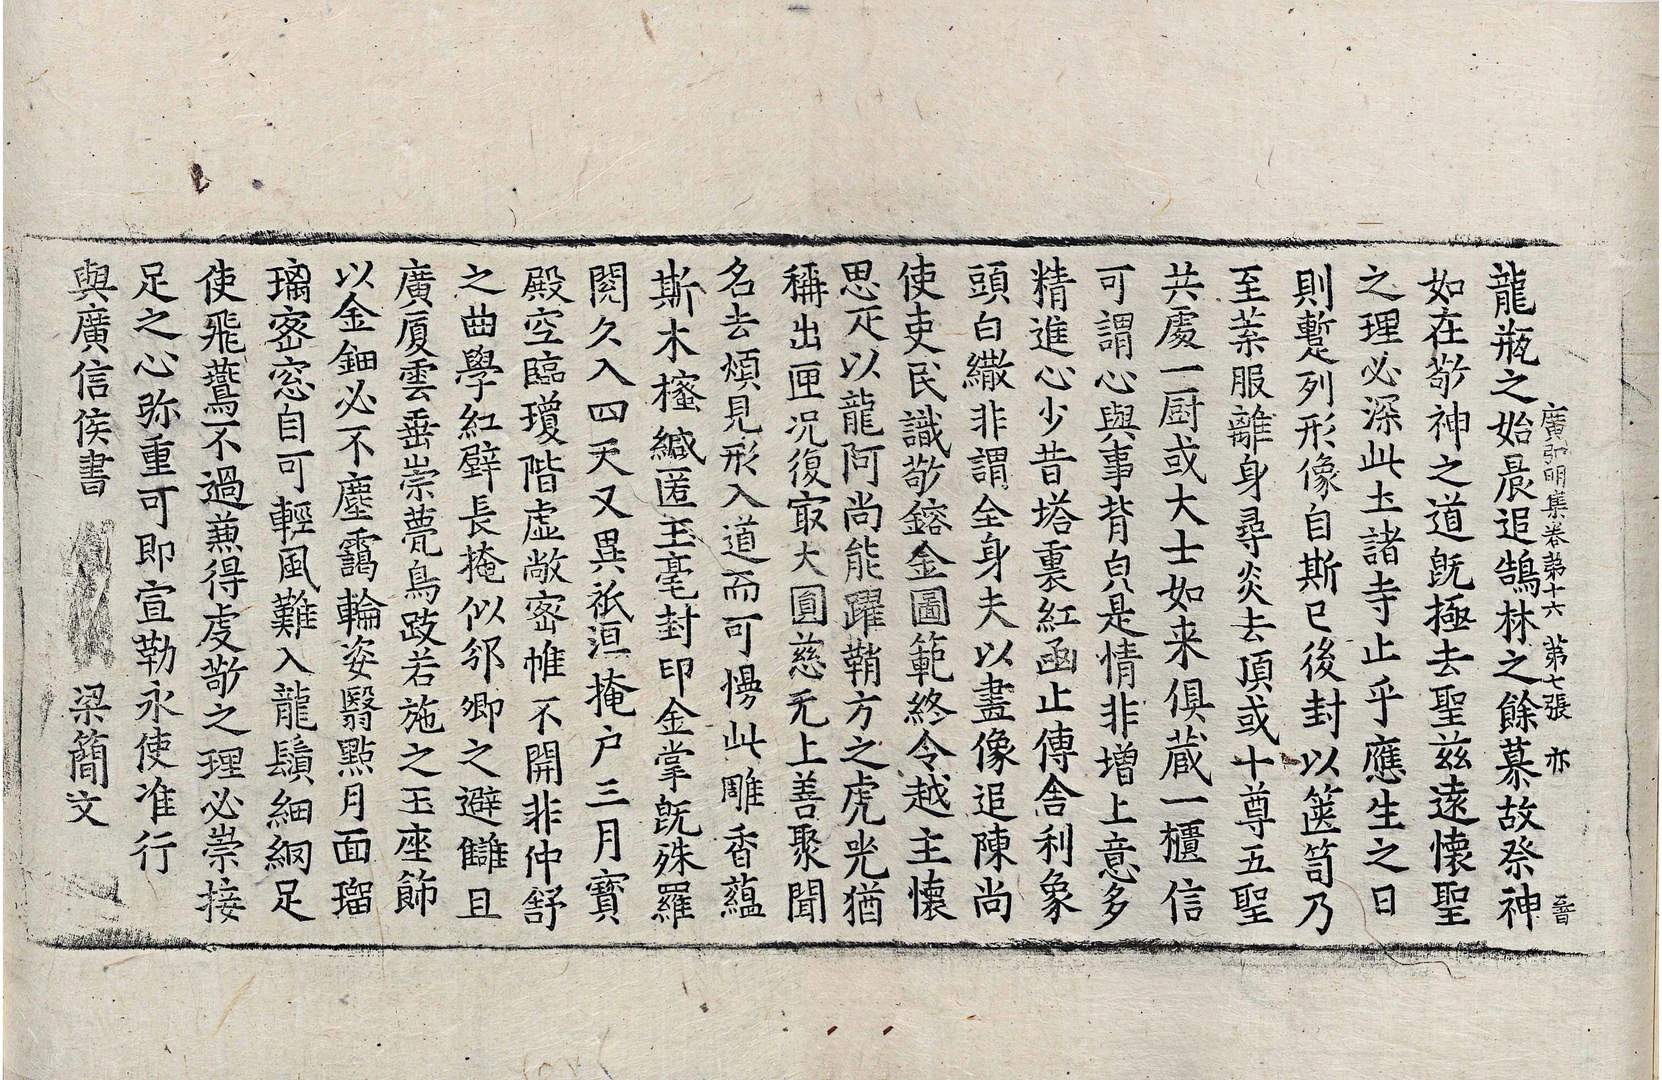 廣弘明集卷第十六 第七張 亦
龍瓶之始晨追鵠林之餘慕故祭神
如在敬神之道旣極去聖兹遠懷聖
之理必深此土諸寺止乎應生之日
則蹔列形像自斯已後封以篋笥乃
至葉服離身尋炎去頂或十尊五聖
共處一廚或大士如来俱藏一櫃信
可謂心與事背皃是情非增上意多
精進心少昔塔裏紅函止傳舍利象
頭白繖非謂全身夫以畫像追陳尚
使吏民識敬鎔金圖範終令越主懷
思疋以龍阿尚能躍鞘方之虎兕猶
稱出匣况復㝡大圓慈无上善聚聞
名去煩見形入道而可慢此雕香蘊
斯木櫁緘匿玉毫封印金掌旣殊羅
閱久入四天又異祇洹掩户三月寳
殿空臨瓊階虛敞密帷不開非仲舒
之曲學紅壁長掩似邠卿之避讎且
廣厦雲垂崇甍鳥跂若施之玉座飾
以金鈿必不塵靄輪姿翳點月面瑠
璃密窓自可輕風難入龍鬚細網足
使飛鷰不過兼得虔敬之理必崇接
足之心弥重可即宣勒永使准行
與廣信侯書 梁簡文